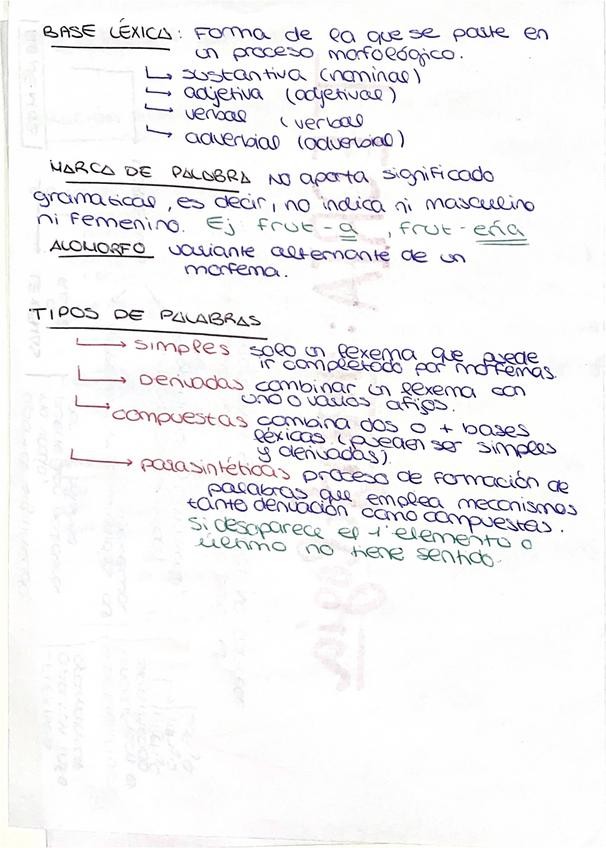 BASE LÉXICA: Forma de la que se parte en
un proceso morfológico.
↳ sustantiva (nominal)
↳ adjetiva (adjetival)
↳ verbal (verbal
↳ adverbial (adverbial)
MARCA DE PALABRA No aporta significado
gramatical, es decir, no indica ni masculino
ni femenino. Ej frut-a, frut-ería
ALOMORFO variante alternante de un
morfema.
TIPOS DE PALABRAS
↳ simples solo un lexema que puede
ir completado por morfemas.
↳ Derivadas combinar un lexema con
uno o varios afijos.
↳ compuestas combina dos o + bases
léxicas (pueden ser simples
y derivadas).
↳ parasintéticas proceso de formación de
palabras que emplea mecanismos
tanto derivación como compuestas.
Si desaparece el 1º elemento o
último no tiene sentido.